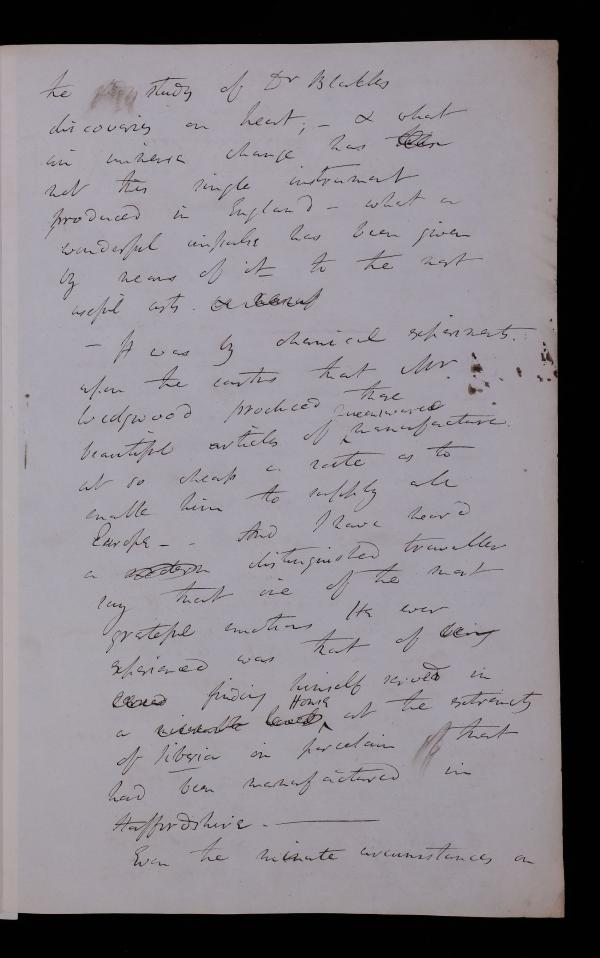 the study of Dr Blacks
discoveries on heat; – & what
an universal change has
not this single instrument
produced in England – what a
wonderful impulse has been given
by means of it to the most
useful arts.
– It was by chemical experiments
upon the earths that Mr
Wedgwood produced those
beautiful articles of manufacture
at so cheap a rate as to
enable him to supply all
Europe – . And I have heard
a distinguished traveller
say that one of the most
grateful emotions He ever
experienced was that of being
finding himself served in
a miserable House at the extremity
of Siberia on porcelain that
had been manufactured in
Staffordshire. –
Even the minute circumstances on